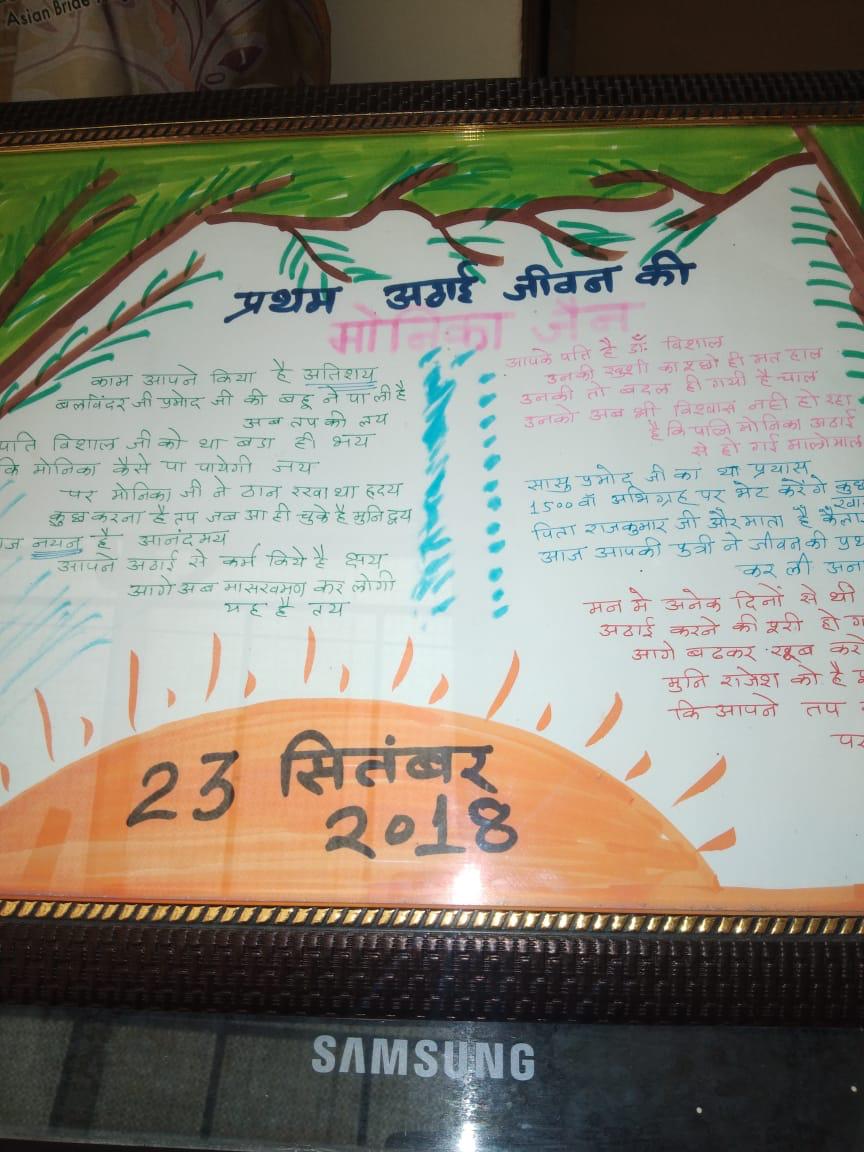 Asian Bride
प्रथम अठाई जीवन की
मोनिका जैन
काम आपने किया है अतिशय
बलविंदर जी प्रमोद जी की बहू ने पा ली है
अब तप की लय
पति विशाल जी को था बडा ही भय
कि मोनिका कैसे पा पायेगी जय
पर मोनिका जी ने ठान रखा था हृदय
कुछ करना है तप जब आ ही चुके है मुनि द्वय
आज नयन है आनंदमय
आपने अठाई से कर्म किये है क्षय
आगे अब मासखमण कर लोगी
यह है तय
आपके पति है डॉ. विशाल
उनकी खुशी का पूछो ही मत हाल
उनकी तो बदल ही गयी है चाल
उनको अब भी विश्वास नही हो रहा
है कि पत्नि मोनिका अठाई
से हो गई मालोमाल
सासु प्रमोद जी का था प्रयास
1500 वाँ अभिग्रह पर भेट करेंगे कुछ
पिता राजकुमार जी और माता है
आज आपकी पुत्री ने जीवन की
कर ली
मन मे अनेक दिनों से थी
अठाई करने की पूरी हो
आगे बढकर खूब करो
मुनि राजेश को है
कि आपने तप
23 सितंबर
2018
SAMSUNG